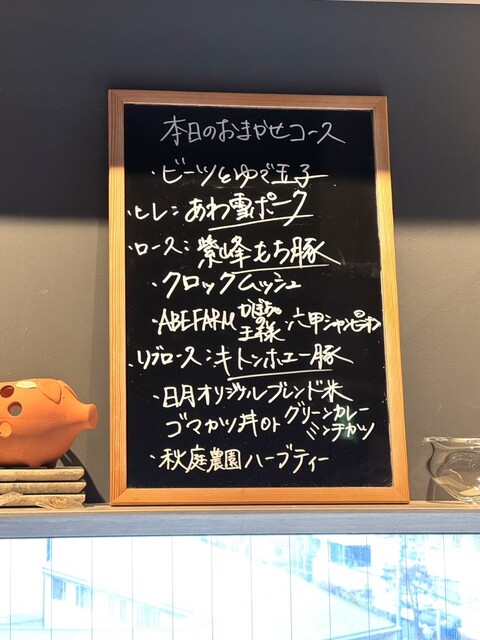 本日のおまかせコース
・ビーツとゆで玉子
・ヒレ：あわ雪ポーク
・ロース：紫峰もち豚
・クロックムッシュ
・ABE FARM かぼちゃの王様・六甲シャンピオン
・リブロース：キトンホエー豚
・日月オリジナルブレンド米
ゴマカツ丼 or グリーンカレー ミンチカツ
・秋庭農園ハーブティー